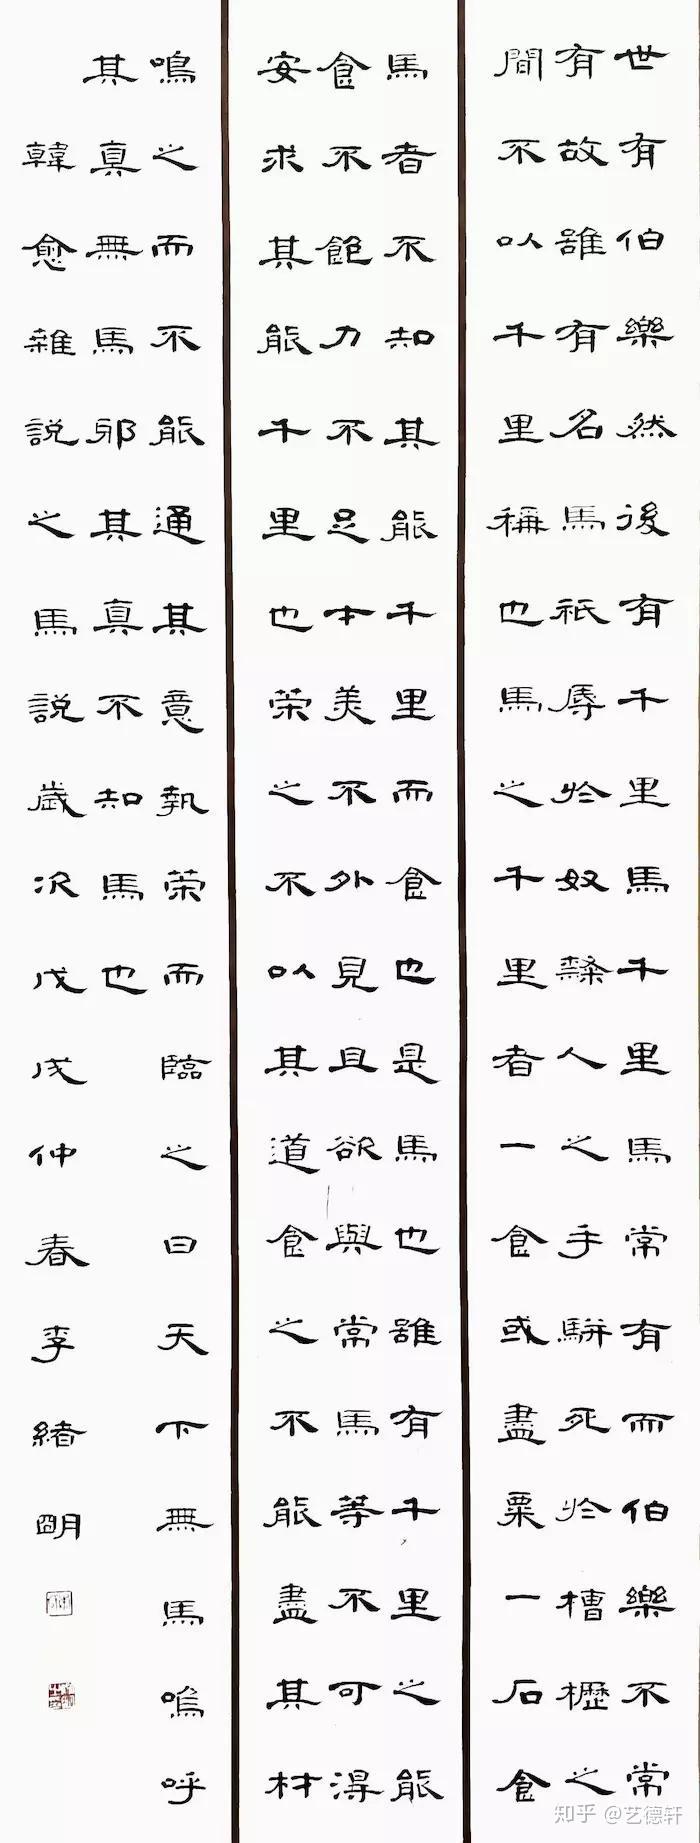 世有伯樂然後有千里馬千里馬常有而伯樂不常
有故雖有名馬祇辱於奴隸人之手駢死於槽櫪之
間不以千里稱也馬之千里者一食或盡粟一石食
馬者不知其能千里而食也是馬也雖有千里之能
食不飽力不足才美不外見且欲與常馬等不可得
安求其能千里也策之不以其道食之不能盡其材
鳴之而不能通其意執策而臨之曰天下無馬嗚呼
其真無馬邪其真不知馬也
韓愈雜說之馬說歲次戊戌仲春李緒明
知乎 @艺德轩